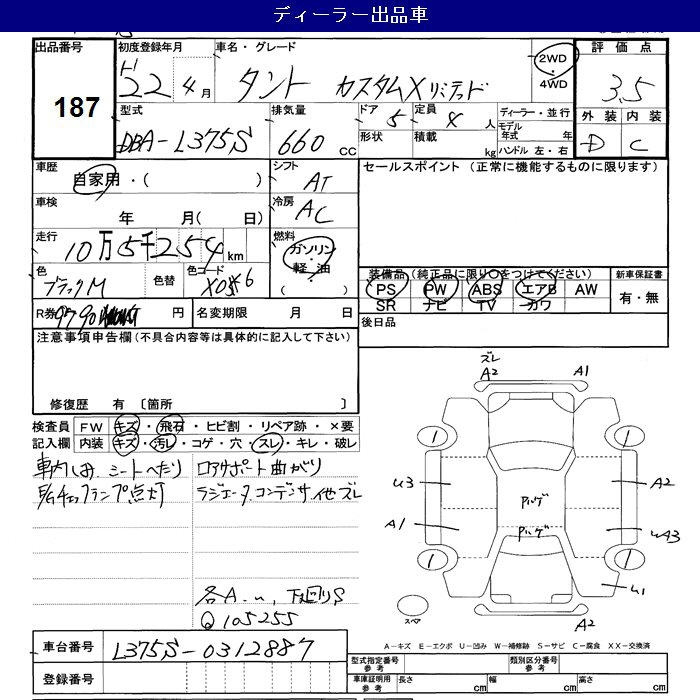 ディーラー出品車
出品番号 初度登録年月 車名・グレード 評価点
187
H22年4月 タント カスタムXリミテッド 2WD・4WD 3.5
型式 排気量 ドア 定員 ディーラー・並行 外装 内装
DBA-L375S 660cc 5 4人 モデル年式 年 D C
形状 積載 kg ハンドル 左・右
車歴 シフト セールスポイント (正常に機能するものに限ります)
自家用・( ) AT
車検 冷房
年 月( 日) AC
走行 燃料
10万5千254km ガソリン・軽油
( )
色 色替 色コード
ブラックM X05 6
装備品(純正品に限り○をつけてください) 新車保証書
PS PW ABS エアB AW 有・無
SR ナビ TV カワ
R券 9790 円 名変期限 月 日 後日品
注意事項申告欄(不具合内容等は具体的に記入して下さい)
修復歴 有 〔箇所 〕
検査員記入欄 FW キズ・飛石・ヒビ割・リペア跡・×要
内装 キズ・汚レ・コゲ・穴・スレ・キレ・破レ
車内しみ、シートへたり
E/Gチェックランプ点灯
コアサポート曲がり
ラジエータ、コンデンサ、他ズレ
各A.U、下廻りS
Q105255
ズレ
A2 A1
1 1
U3 A2
パンク
A1 UA3
パンク
1 1
U1
スペア
A2
A-キズ E-エクボ U-凹み W-補修跡 S-サビ C-腐食 XX-交換済
車台番号 L375S-0312887
登録番号
型式指定番号 参考 類別区分番号 参考
車庫証明用 参考 長さ cm 幅 cm 高さ cm